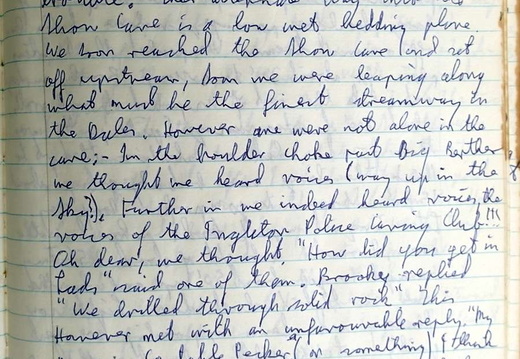 Show Cave is a low wet bedding plane.
We soon reached the Show Cave and set
off upstream, soon we were leaping along
what must be the finest streamway in
the Dales. However we were not alone in the
cave;- In the boulder choke past Big Bertha
we thought we heard voices (way up in the
sky?). Further in we indeed heard voices, the
voices of the Ingleton Police Caving Club!!!
Oh dear, we thought. "How did you get in
Lads" said one of them. Brooky replied
"We drilled through solid rock" This
However met with an unfavourable reply. "My
Pecker" or something I think